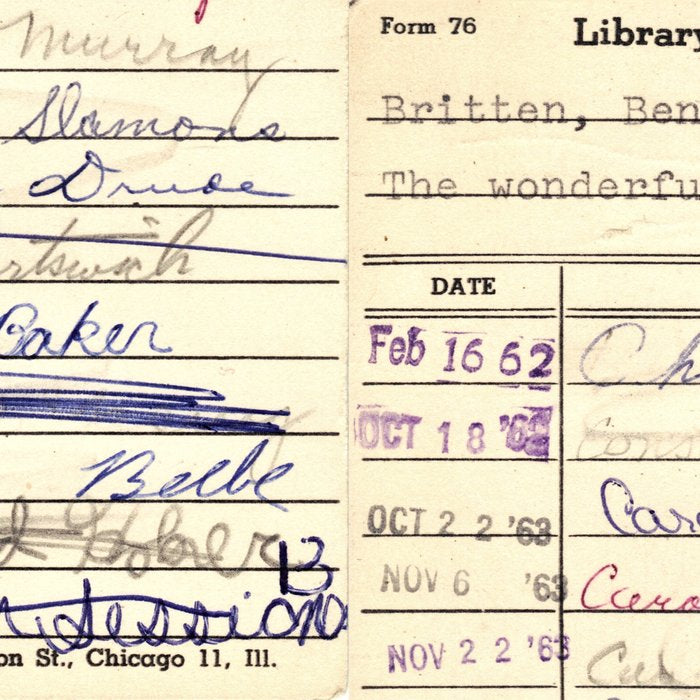 Murray
Slamons
Druce
Baker
Beebe
B
Session
on St., Chicago 11, Ill.
Form 76
Library
Britten, Ben
The wonderfu
DATE
Feb 16 62
Ch
OCT 18 '63
Cons
OCT 22 '63
Car
NOV 6 '63
Caro
NOV 22 '63